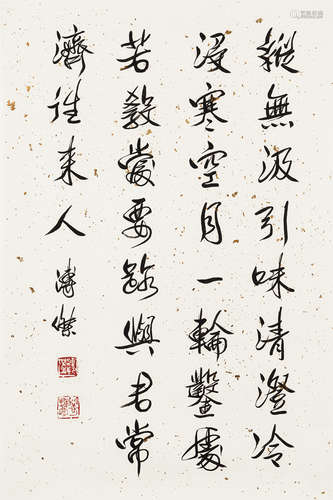 縱無汲引味清澄冷
浸寒空月一輪鑿處
若教當要路與君常
濟往來人
溥傑